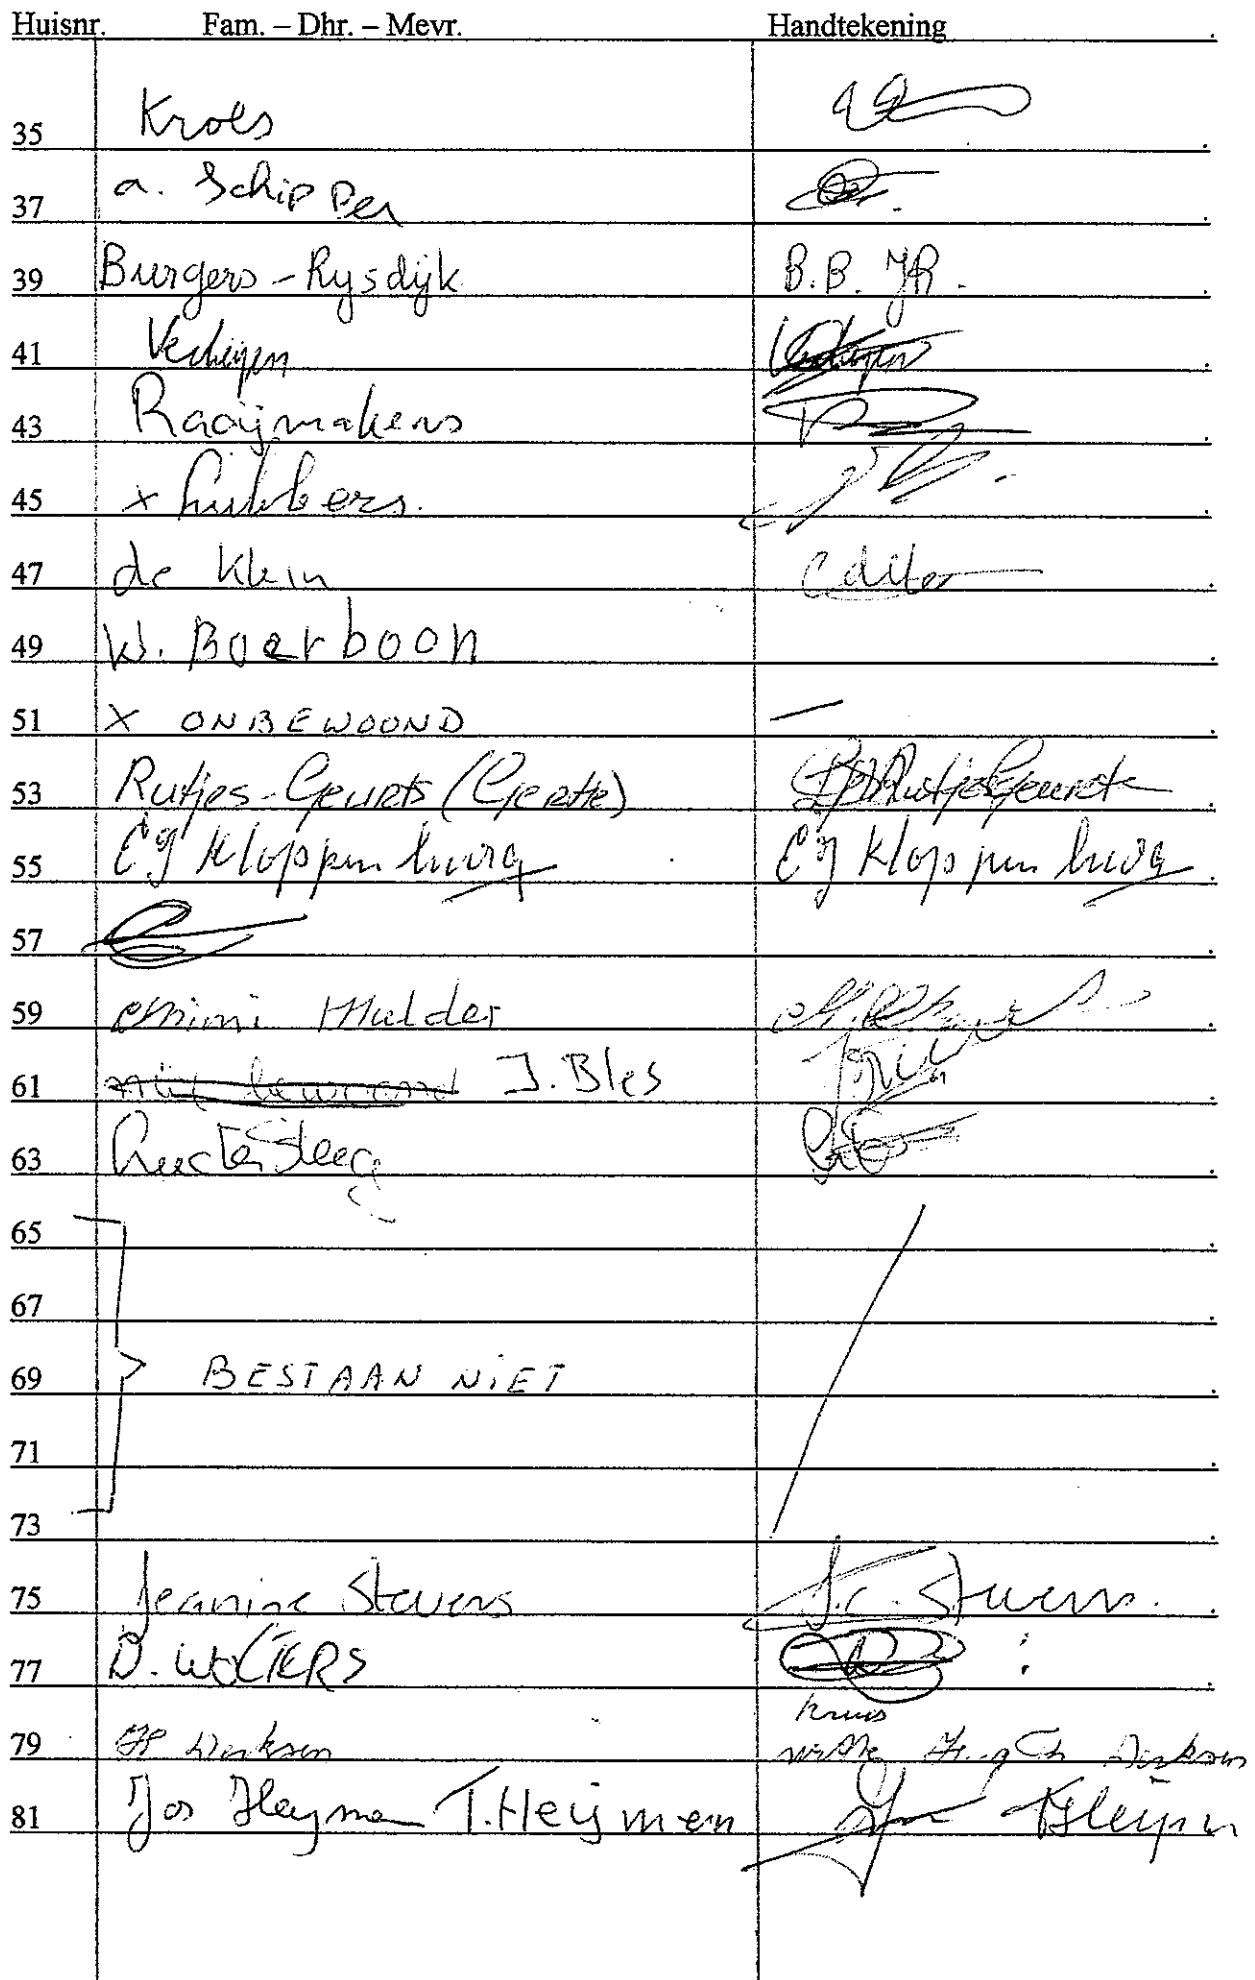 Huisnr. Fam. – Dhr. – Mevr. Handtekening
35 Kroes
37 a. Schipper
39 Burgers - Rijsdijk B.B. JR.
41 Verheijen
43 Raaijmakers
45 x Lubbers.
47 de Klein
49 W. Boerboon
51 X ONBEWOOND —
53 Rutjes-Geurts (Gertie) Rutjes Geurts
55 EJ Kloppenburg EJ Kloppenburg
57
59 Mimi Mulder
61 niet bewoond J. Bles
63
65
67
69 BESTAAN NIET
71
73
75 Jeanine Stevens J.C. Stevens.
77 D. WOLTERS
79 Derksen Derksen
81 Jos Heymen T. Heijmen